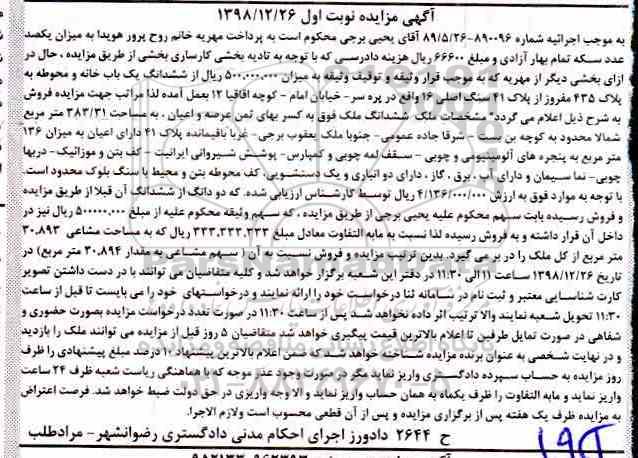 آگهی مزایده نوبت اول ۱۳۹۸/۱۲/۲۶
به موجب اجرائیه شماره ۸۹۰۰۹۶-۸۹/۵/۲۶ آقای یحیی برجی محکوم است به پرداخت مهریه خانم روح پرور هویدا به میزان یکصد
عدد سکه تمام بهار آزادی و مبلغ ۶۶۶۰۰ ریال هزینه دادرسی که با توجه به تادیه بخشی کارسازی بخشی از طریق مزایده ، حال در
ازای بخشی دیگر از مهریه که به موجب قرار وثیقه و توقیف وثیقه به میزان ۵۰۰,۰۰۰,۰۰۰ ریال از ششدانگ یک باب خانه و محوطه به
پلاک ۴۳۵ مفروز از پلاک ۴۱ سنگ اصلی ۱۶ واقع در پره سر- خیابان امام - کوچه اقاقیا ۱۲ بعمل آمده لذا مراتب جهت مزایده فروش
به شرح ذیل اعلام می گردد" مشخصات ملک ششدانگ ملک فوق به کسر بهای ثمن عرصه و اعیان ، به مساحت ۳۸۳/۳۱ متر مربع
شمالا محدود به کوچه بن بست - شرقا جاده عمومی- جنوبا ملک یعقوب برجی- غربا باقیمانده پلاک ۴۱ دارای اعیان به میزان ۱۳۶
متر مربع به پنجره های آلومینیومی و چوبی - سقف لمه چوبی و کمپارس- پوشش شیروانی ایرانیت - کف بتن و موزائیک- دربها
چوبی- نما سیمان و دارای آب ، برق ، گاز ، دارای دو انباری و یک دستشویی، کف محوطه بتن و محیط با سنگ بلوک محدود است.
با توجه به موارد فوق به ارزش ۴/۱۳۶/۰۰۰/۰۰۰ ریال توسط کارشناس ارزیابی شده. که دو دانگ از ششدانگ آن قبلا از طریق مزایده
و فروش رسیده بابت سهم محکوم علیه یحیی برجی از طریق مزایده ، که سهم وثیقه محکوم علیه از مبلغ ۵۰۰۰۰۰,۰۰۰ ریال نیز در
داخل آن قرار داشته و به فروش رسیده لذا نسبت به مابه التفاوت معادل مبلغ ۳۳۳,۳۳۳,۳۳۳ ریال ملک. که به مساحت مشاعی ۳۰.۸۹۳
متر مربع از کل ملک را در بر می گیرد. بدین ترتیب مزایده و فروش نسبت به آن ( سهم مشاعی به مقدار ۳۰.۸۹۴ متر مربع) در
تاریخ ۱۳۹۸/۱۲/۲۶ ساعت ۱۱ الی ۱۱:۳۰ در دفتر این شعبه برگزار خواهد شد و کلیه متقاضیان می توانند با در دست داشتن تصویر
کارت شناسایی معتبر و ثبت نام در سامانه ثنا درخواست خود را ارائه نمایند و درخواستهای خود را می بایست تا قبل از ساعت
۱۱:۳۰ تحویل شعبه نمایند والا ترتیب اثر داده نخواهد شد پس از ساعت ۱۱:۳۰ در صورت تعدد درخواست مزایده بصورت حضوری و
شفاهی در صورت تمایل طرفین تا اعلام بالاترین قیمت پیگیری خواهد شد متقاضیان ۵ روز قبل از مزایده می توانند ملک را بازدید
و در نهایت شخصی به عنوان برنده مزایده شناخته خواهد شد که ضمن اعلام بالاترین پیشنهاد ۱۰ درصد مبلغ پیشنهادی را ظرف
روز مزایده به حساب سپرده دادگستری واریز نماید مگر در صورت وجود عذر موجه که با هماهنگی ریاست شعبه ظرف ۲۴ ساعت
واریز نماید و مابه التفاوت را ظرف یکماه به همان حساب واریز نماید و الا وجه واریزی در حق دولت ضبط خواهد شد. فرصت اعتراض
به مزایده ظرف یک هفته پس از برگزاری مزایده و پس از آن قطعی محسوب است ولازم الاجرا.
ح ۲۶۴۴ دادورز اجرای احکام مدنی دادگستری رضوانشهر- مرادطلب